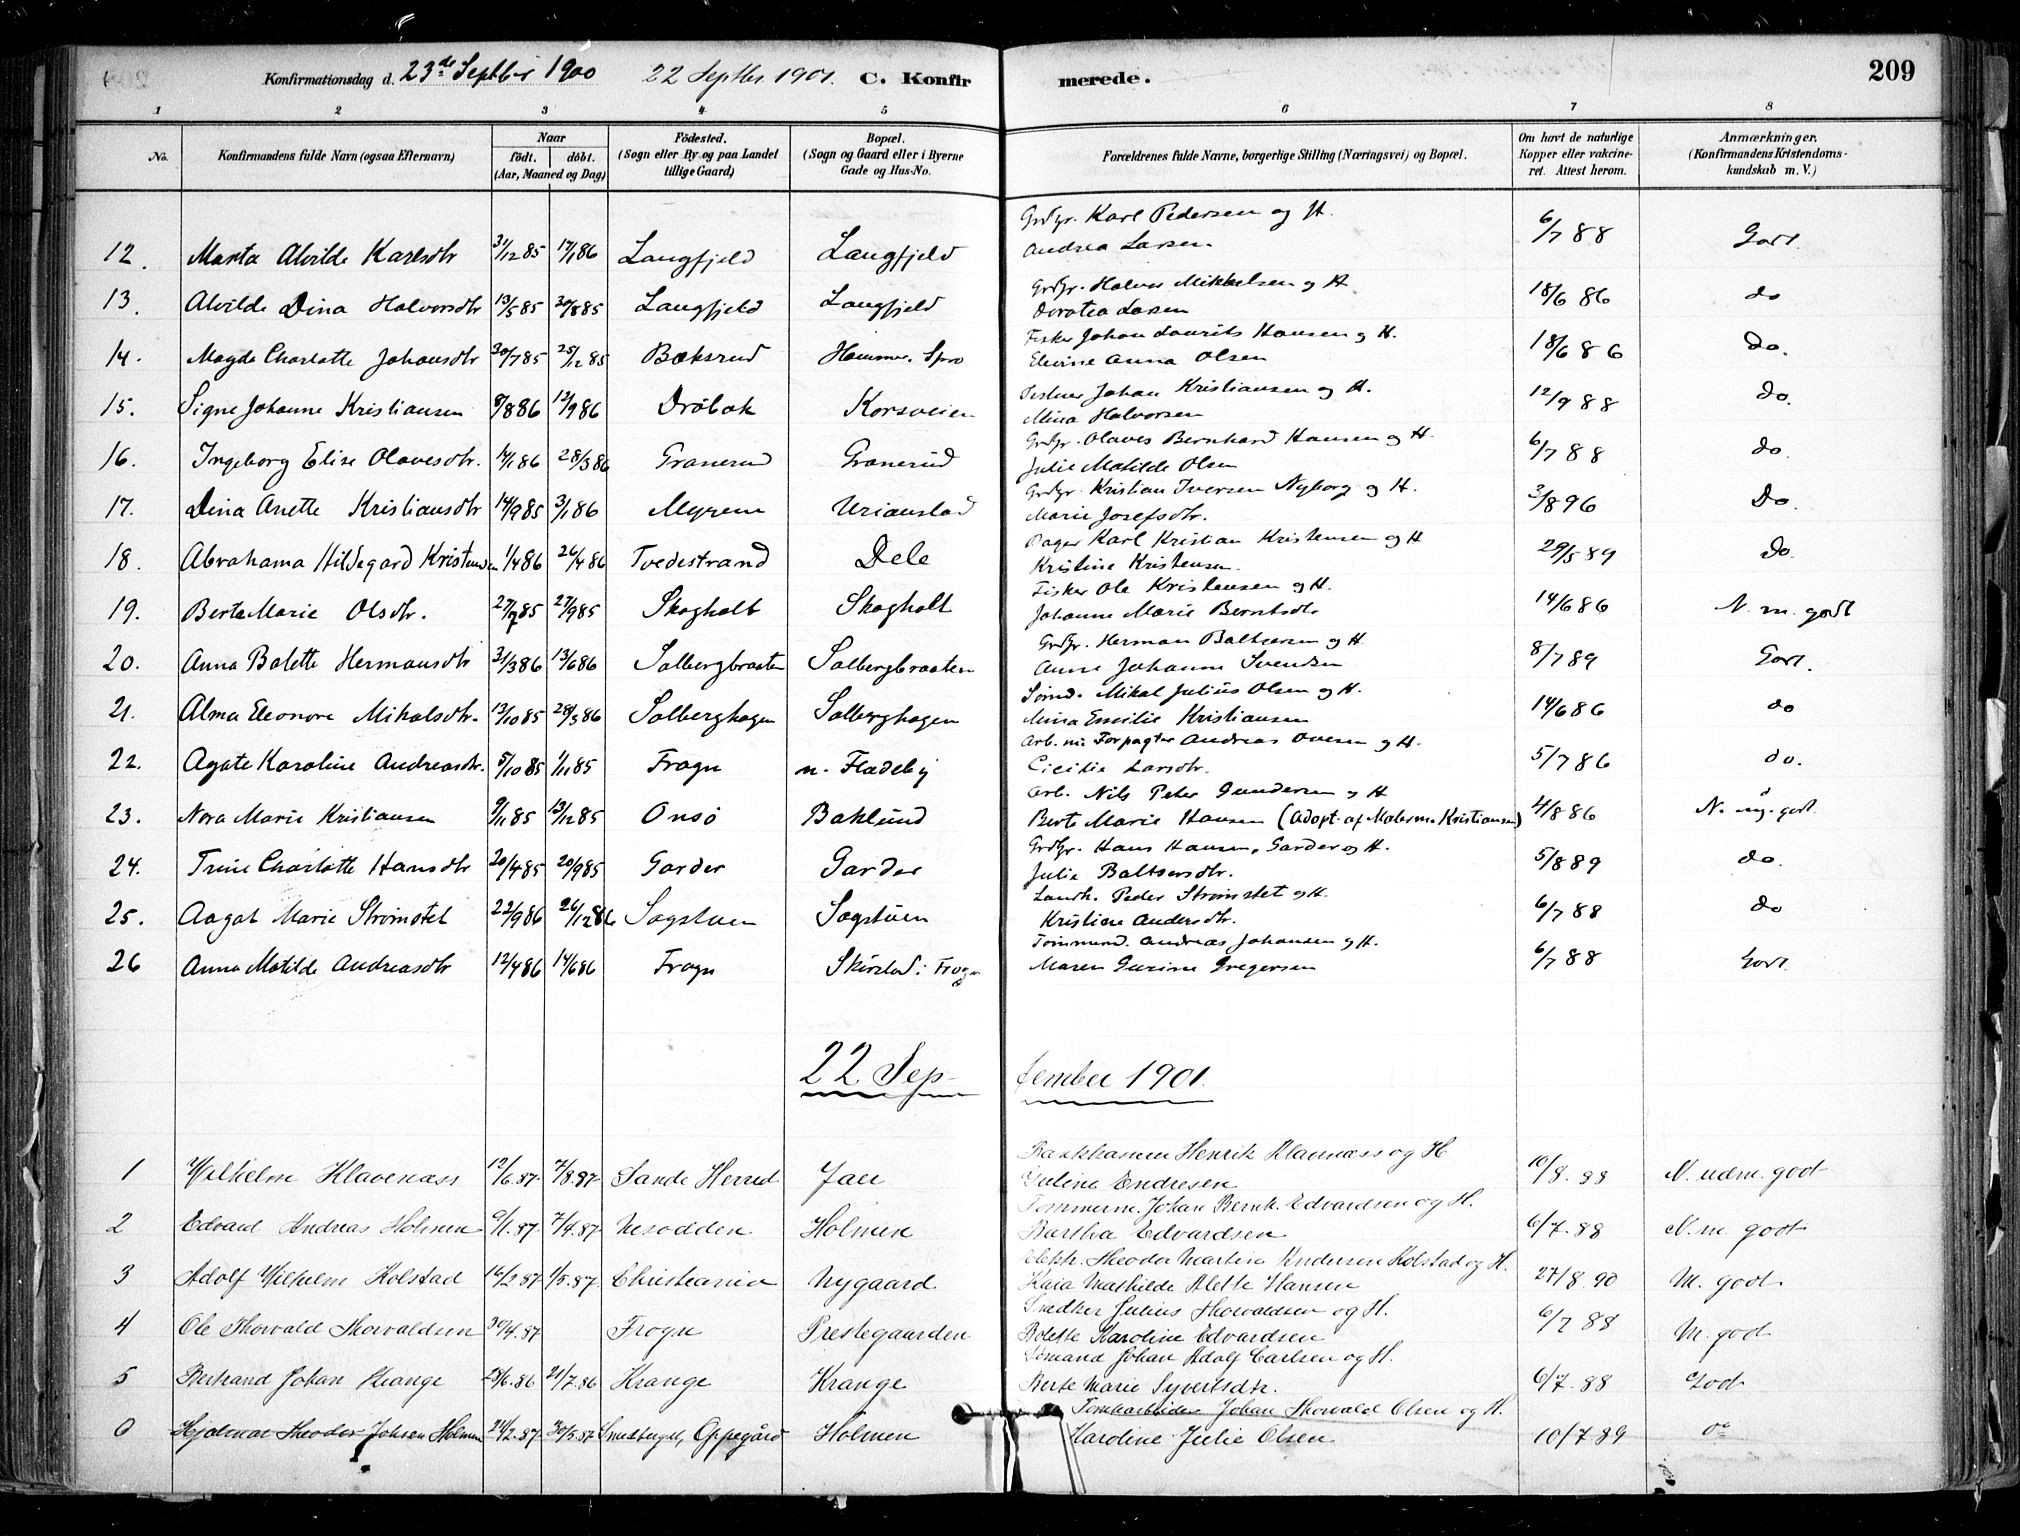 Konfirmationsdag d. 23de Septbr 1900 22 Septbr. 1901. C. Konfirmerede. 209
1 2 3 4 5 6 7 8
No. Konfirmandens fulde Navn (ogsaa Efternavn) Naar födt. döbt. (Aar, Maaned og Dag) Födested. (Sogn eller By og paa Landet tillige Gaard) Bopæl. (Sogn og Gaard eller i Byerne Gade og Hus-No. Forældrenes fulde Navne, borgerlige Stilling (Næringsvei) og Bopæl. Om havt de naturlige Kopper eller vakcineret. Attest herom. Anmærkninger. (Konfirmandens Kristendomskundskab m. V.)
Grdbr. Karl Pedersen og H.
12. Marta Alvilde Karlsdtr 31/12 85 17/1 86 Langfjeld Langfjeld Andrea Larsen 6/7 88 Godt.
Grdbr. Halvor Mikkelsen og H
13. Alvilde Dina Halvorsdtr 13/5 85 30/8 85 Langfjeld Langfjeld Dorotea Larsen 18/6 86 do
Fisker Johan Laurits Hansen og H.
14. Magda Charlotte Johansdtr 30/7 85 25/12 85 Bæksrud Hammer. Spro Elevine Anna Olsen 18/6 86 do.
Johan Kristiansen og H.
15. Signe Johanne Kristiansen 8/8 86 12/9 86 Dröbak Korsveien Mina Halvorsen 12/9 88 do.
Grdbr. Olaves Bernhard Hansen og H.
16. Ingeborg Elise Olavesdtr. 14/1 86 28/3 86 Granerud Granerud Julie Matilde Olsen 6/7 88 do.
Grdbr. Kristian Iversen Nyborg og H.
17. Dina Anette Kristiansdtr 14/9 85 3/1 86 Myren Urianstad Marie Josefsdtr. 3/8 96 Do.
Bager Karl Kristian Kristensen og H
18. Abrahama Hildegard Kristensen 1/4 86 26/4 86 Tvedestrand Dele Kristine Kristensen. 29/5 89 do.
Fisker Ole Kristensen og H.
19. Berta Marie Olsdtr. 27/7 85 27/9 85 Skogholt Skogholt Johanne Marie Berntsdtr 14/6 86 N. m. godt
Grdbr. Herman Baltsersen og H.
20. Anna Bolette Hermansdtr 31/3 86 13/6 86 Solbergbraaten Solbergbraaten Anne Johanne Svendsen 8/7 89 Godt.
Sömd. Mikal Julius Olsen og H.
21. Alma Eleonore Mikalsdtr. 13/10 85 28/3 86 Solberghagen Solberghagen Mina Emilie Kristiansen 14/6 86 do
Arb. nu Forpagter Andreas Ovesen og H.
22. Agate Karoline Andreasdtr. 5/10 85 1/11 85 Frogn n. Fladeby Cicilie Larsdtr. 5/7 86 do.
Arb. Nils Peter Gundersen og H
23. Nora Marie Kristiansen 9/11 85 13/12 85 Onsö Baklund Berte Marie Hansen (Adopt. af Malerm. Kristiansen) 4/8 86 N. mg. godt.
Grdbr. Hans Hansen, Garder og H.
24. Trine Charlotte Hansdtr 20/4 85 20/9 85 Garder Garder Julie Baltsersdtr. 5/8 89 do.
Landh. Peder Strömstet og H.
25. Aagot Marie Strömstet 22/9 86 26/12 86 Sagstuen Sagstuen Kristiane Andersdtr. 6/7 88 do
Tömmermd. Andreas Johansen og H.
26 Anna Matilde Andreasdtr 12/4 86 14/6 86 Frogn Skirstad i Frogn Maren Gurine Gregersen 6/7 88 Godt.
22 September 1901.
Baakhavnm Henrik Klavenæss og H
1 Wilhelm Klavenæss 12/6.87. 7/8.87. Sande Herred Jaer Juline Endresen 10/8.88 N. udm. godt
Tömmerm. Johan Bernh. Edvardsen og H.
2 Edvard Andreas Holmen 9/1.87. 7/4.87. Nesodden Holmen Bartha Edvardsen 6/7.88 N. m. godt
Theodor Martin Andersen Kolstad og H.
3 Adolf Wilhelm Kolstad 16/2.87. 1/5.87. Christiania Nygaard Kaia Mathilde Alette Hansen 27/8.90 M. godt
Snedker Julius Thorvaldsen og H.
4 Ole Thorvald Thorvaldsen 30/4.87 Frogn Prestegaarden Bolette Karoline Edvardsen 6/7 88 M. godt
Sömand Johan Adolf Carlsen og H.
5 Bertrand Johan Krange 28/6.86 21/7.86 Krange Krange Berte Marie Syvertsdtr. 6/7.88 Godt
Tomtearbeider Johan Thorvald Olsen og H.
6 Hjalmar Theodor Johsen Holmen 24/2.87. 30/5.87 Smedstuget, Oppegård Holmen Karoline Julie Olsen 10/7.89 do